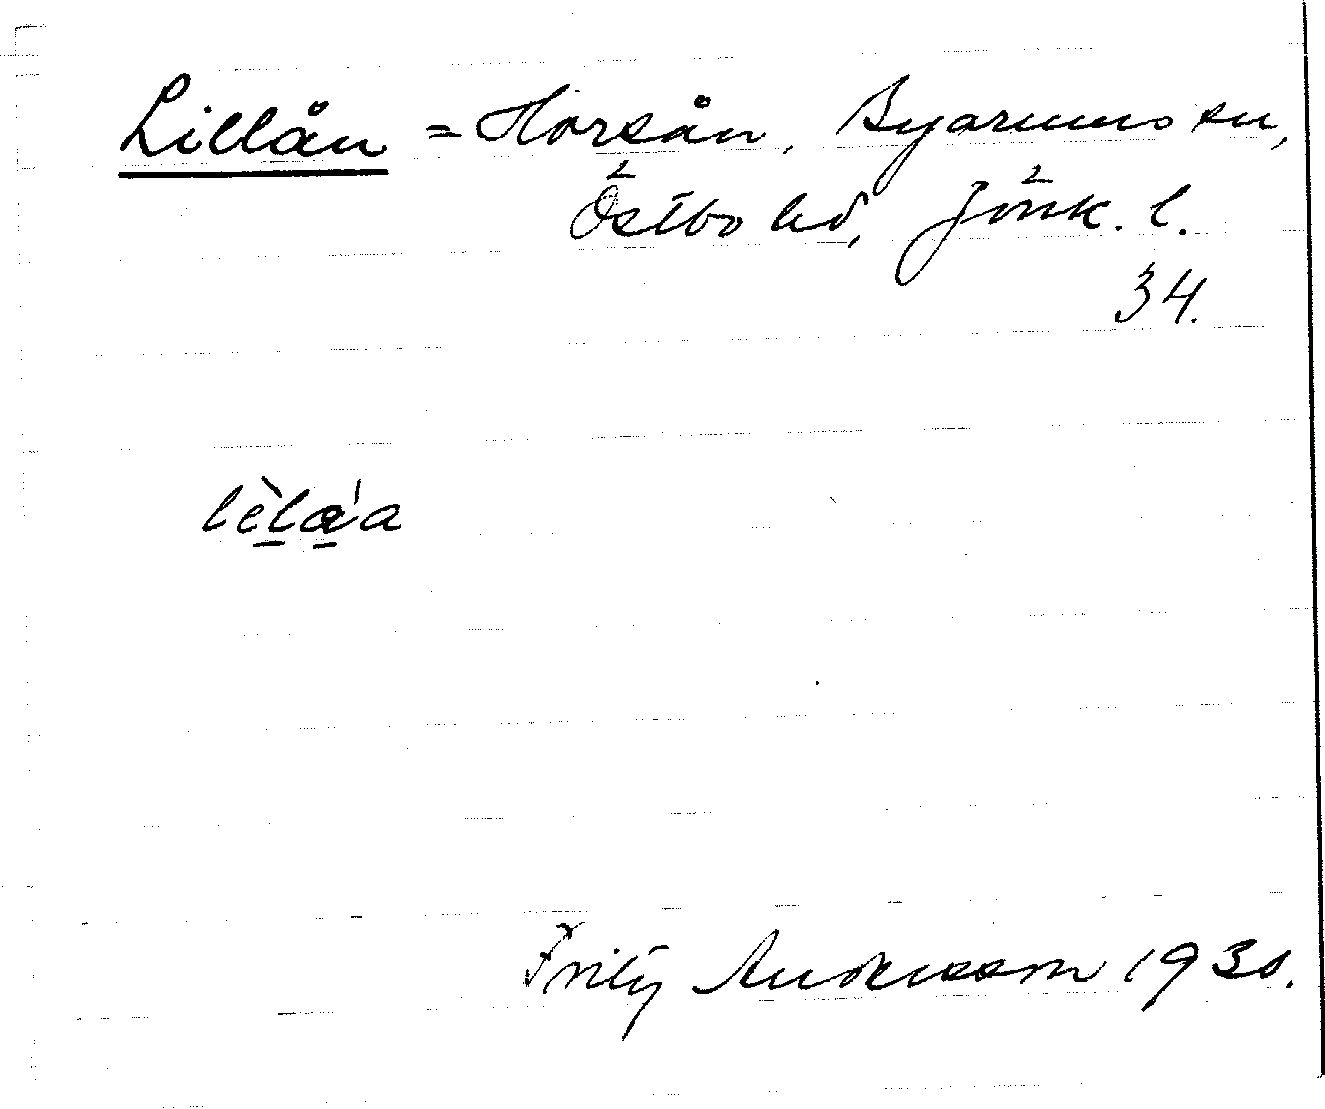 Lillån = Horsån, Byarums sn,
Östbo hd, Jönk. l.
34.
lèla̱'a
Fritz Andersson 1930.